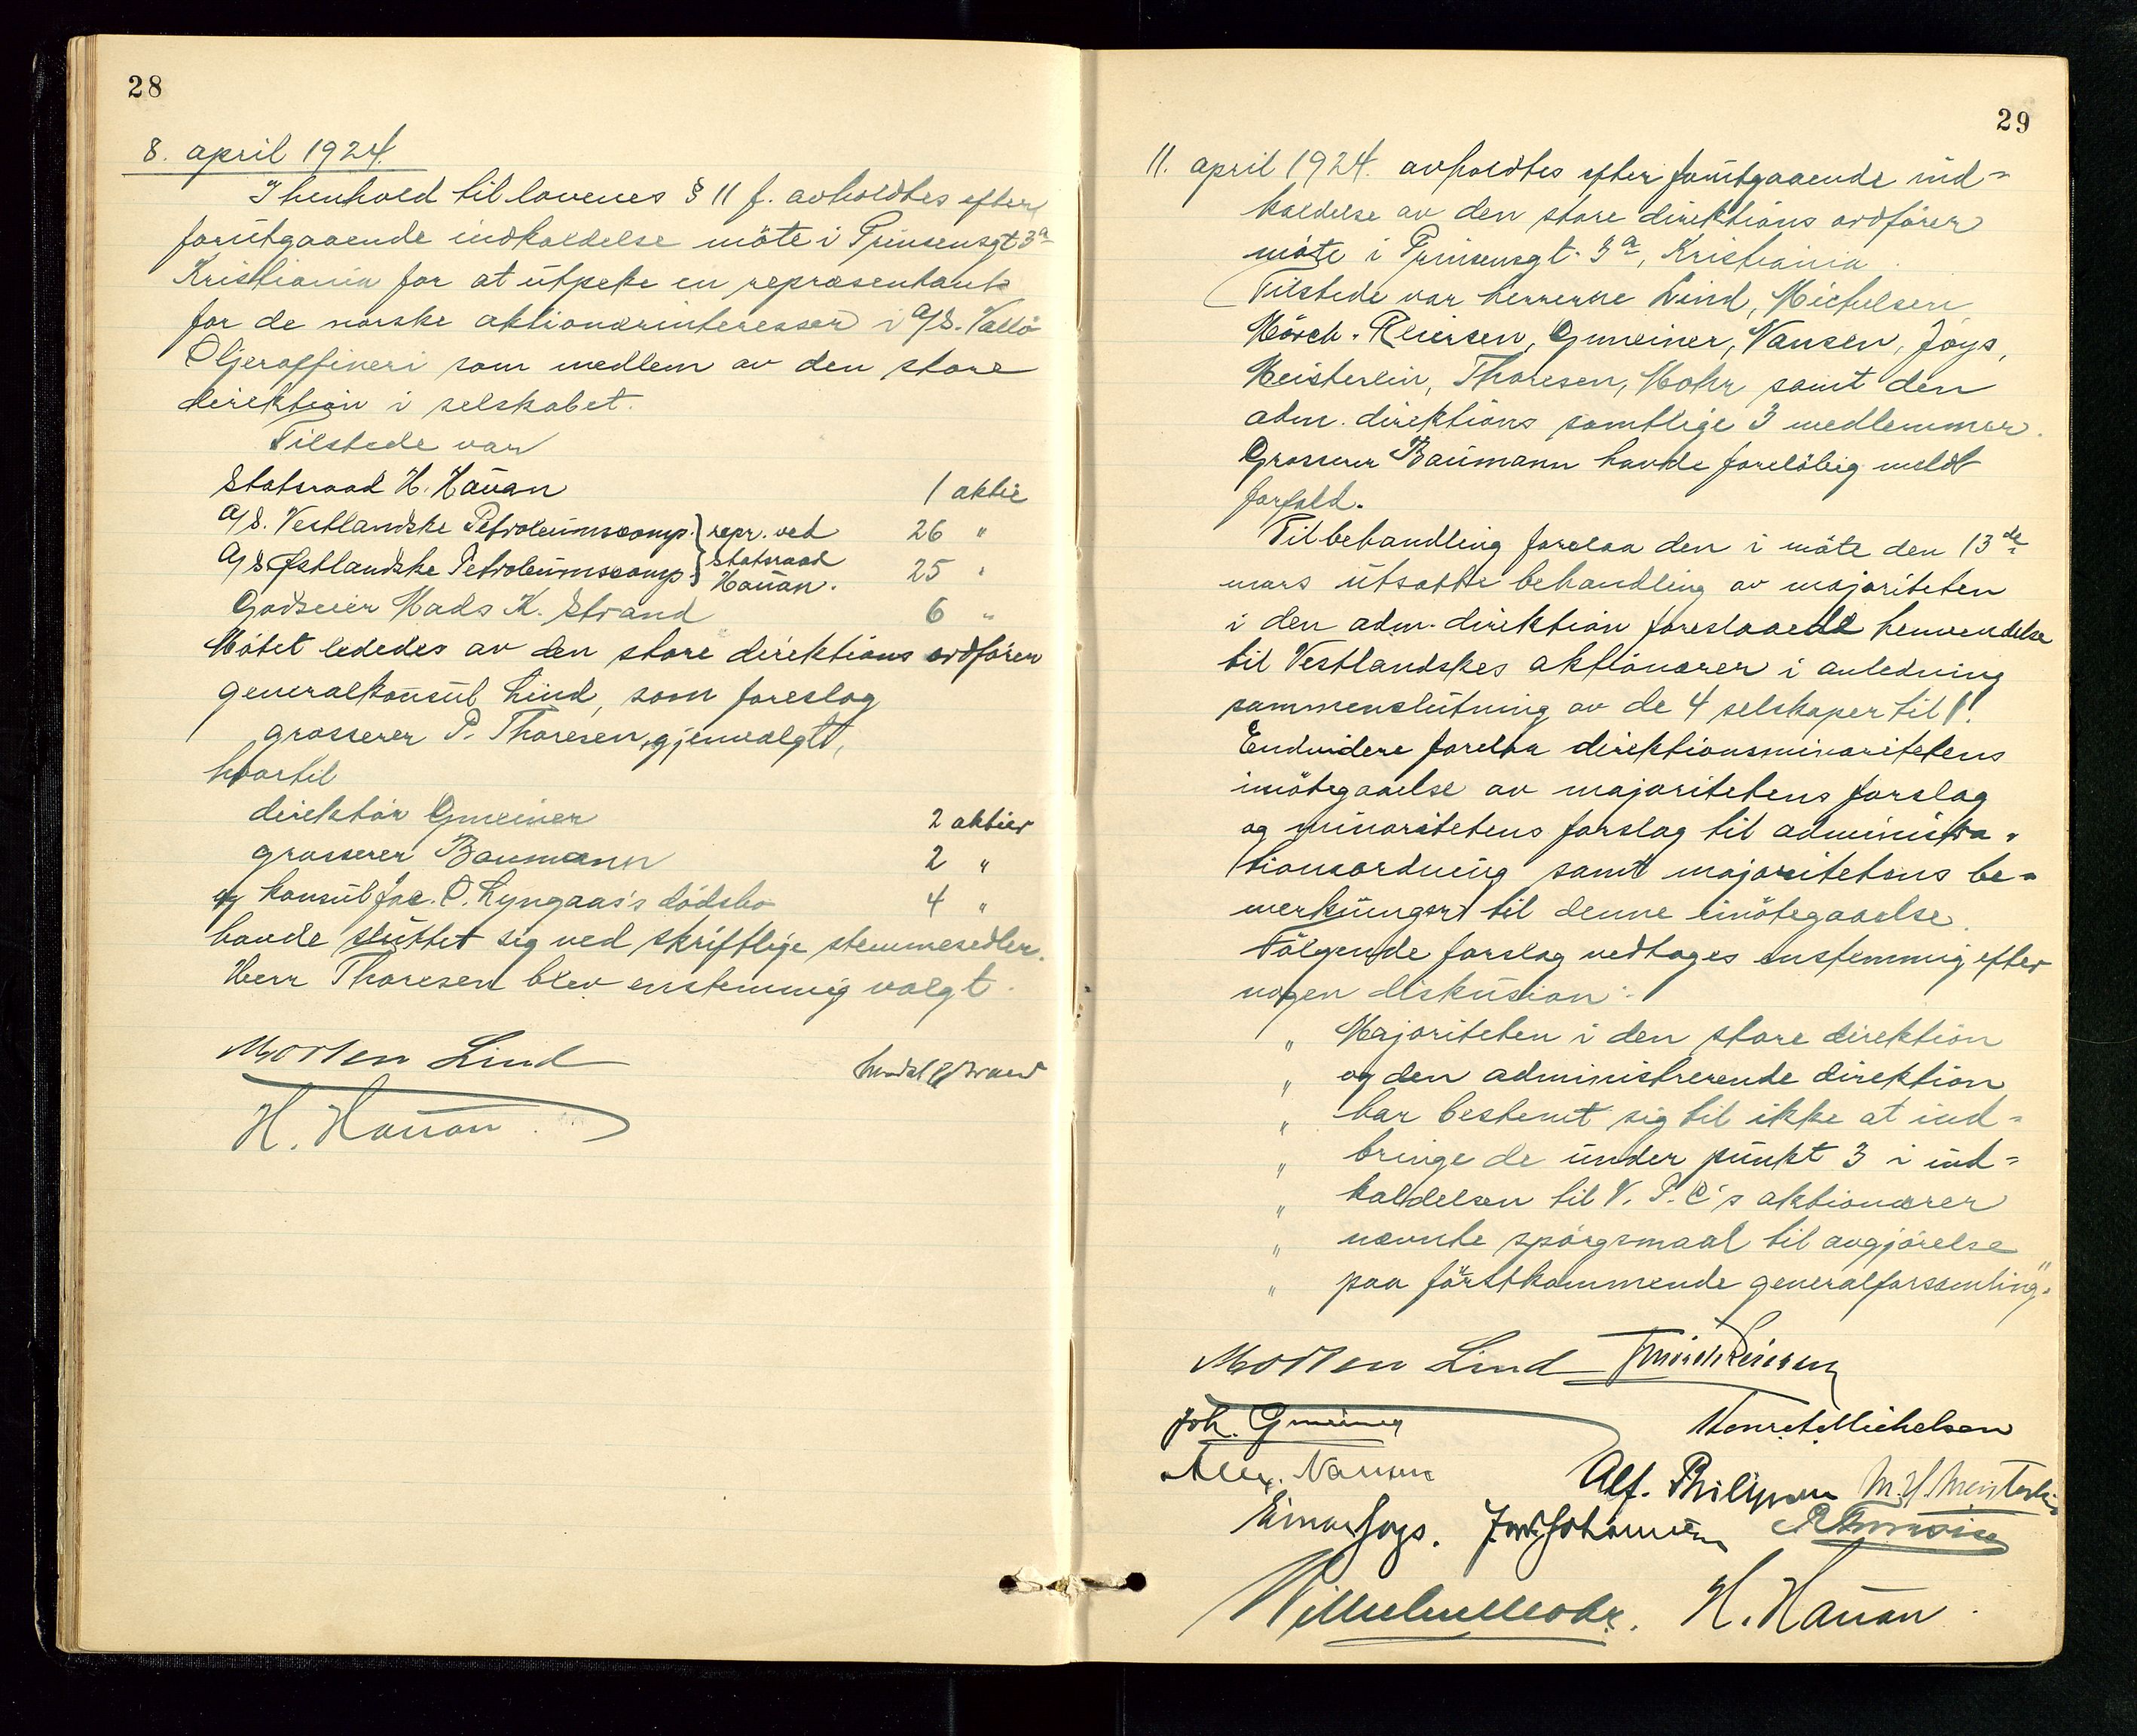 28
8. april 1924.
I henhold til lovenes § 11 f. avholdtes efter
forutgaaende indkaldelse möte i Prinsensgt 3a
Kristiania for at utpeke en repræsentant
for de norske aktionærinteresser i A/S. Vallö
Oljeraffineri som medlem av den store
direktion i selskabet.
Tilstede var
Statsraad H. Hauan 1 aktie
A/S. Vestlandske Petroleumscomp. } repr. ved 26 "
A/S Østlandske Petroleumscomp. } Statsraad Hauan. 25 "
Godseier Mads K. Strand 6 "
Mötet lededes av den store direktions ordförer
generalkonsul Lind, som foreslog
grosserer P. Thoresen gjenvalgt,
hvortil
direktör Gmeiner 2 aktier
grosserer Baumann 2 "
og konsul Jac. O. Lyngaas's dödsbo 4 "
havde sluttet sig ved skriftlige stemmesedler.
Herr Thoresen blev enstemmig valgt.
Morten Lind
H. Hauan
29
11. april 1924. avholdtes efter forutgaaende ind-
kaldelse av den store direktions ordförer
möte i Prinsensgt. 3a, Kristiania.
Tilstede var herrerne Lind, Michelsen,
Mörch-Reiersen, Gmeiner, Nansen, Joys,
Meisterlin, Thoresen, Mohr samt den
adm. direktions samtlige 3 medlemmer.
Grosserer Baumann havde foreløbig meldt
forfald.
Til behandling forelaa den i möte den 13de
mars utsatte behandling av majoriteten
i den adm. direktion foreslaaede henvendelse
til Vestlandskes aktionærer i anledning
sammenslutning av de 4 selskaper til 1.
Endvidere forelaa direktionsminoritetens
imötegaaelse av majoritetens forslag
og minoritetens forslag til administra-
tionsordning samt majoritetens be-
merkninger til denne imötegaaelse.
Fölgende forslag vedtoges enstemmig efter
nogen diskusion:
" Majoriteten i den store direktion
" og den administrerende direktion
" har bestemt sig til ikke at ind-
" bringe de under punkt 3 i ind-
" kaldelsen til V. P. C's aktionærer
" nævnte spörgsmaal til avgjörelse
" paa förstkommende generalforsamling."
Morten Lind Mörch Reiersen
Joh. Gmeiner Henrik Michelsen
Alex. Nansen Alf. Philipson M. H. Meisterlin
Einar Joys. Johannesen P. Thoresen
Wilhelm Mohr. H. Hauan.